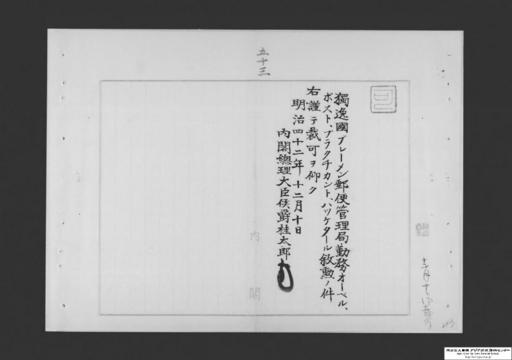 五十三
獨逸國ブレーメン郵便管理局勤務オーベル、
ポスト、プラクチカント、ハッケタール敘勲ノ件
右謹テ裁可ヲ仰ク
明治四十二年十二月十日
內閣總理大臣侯爵桂太郎
內
閣